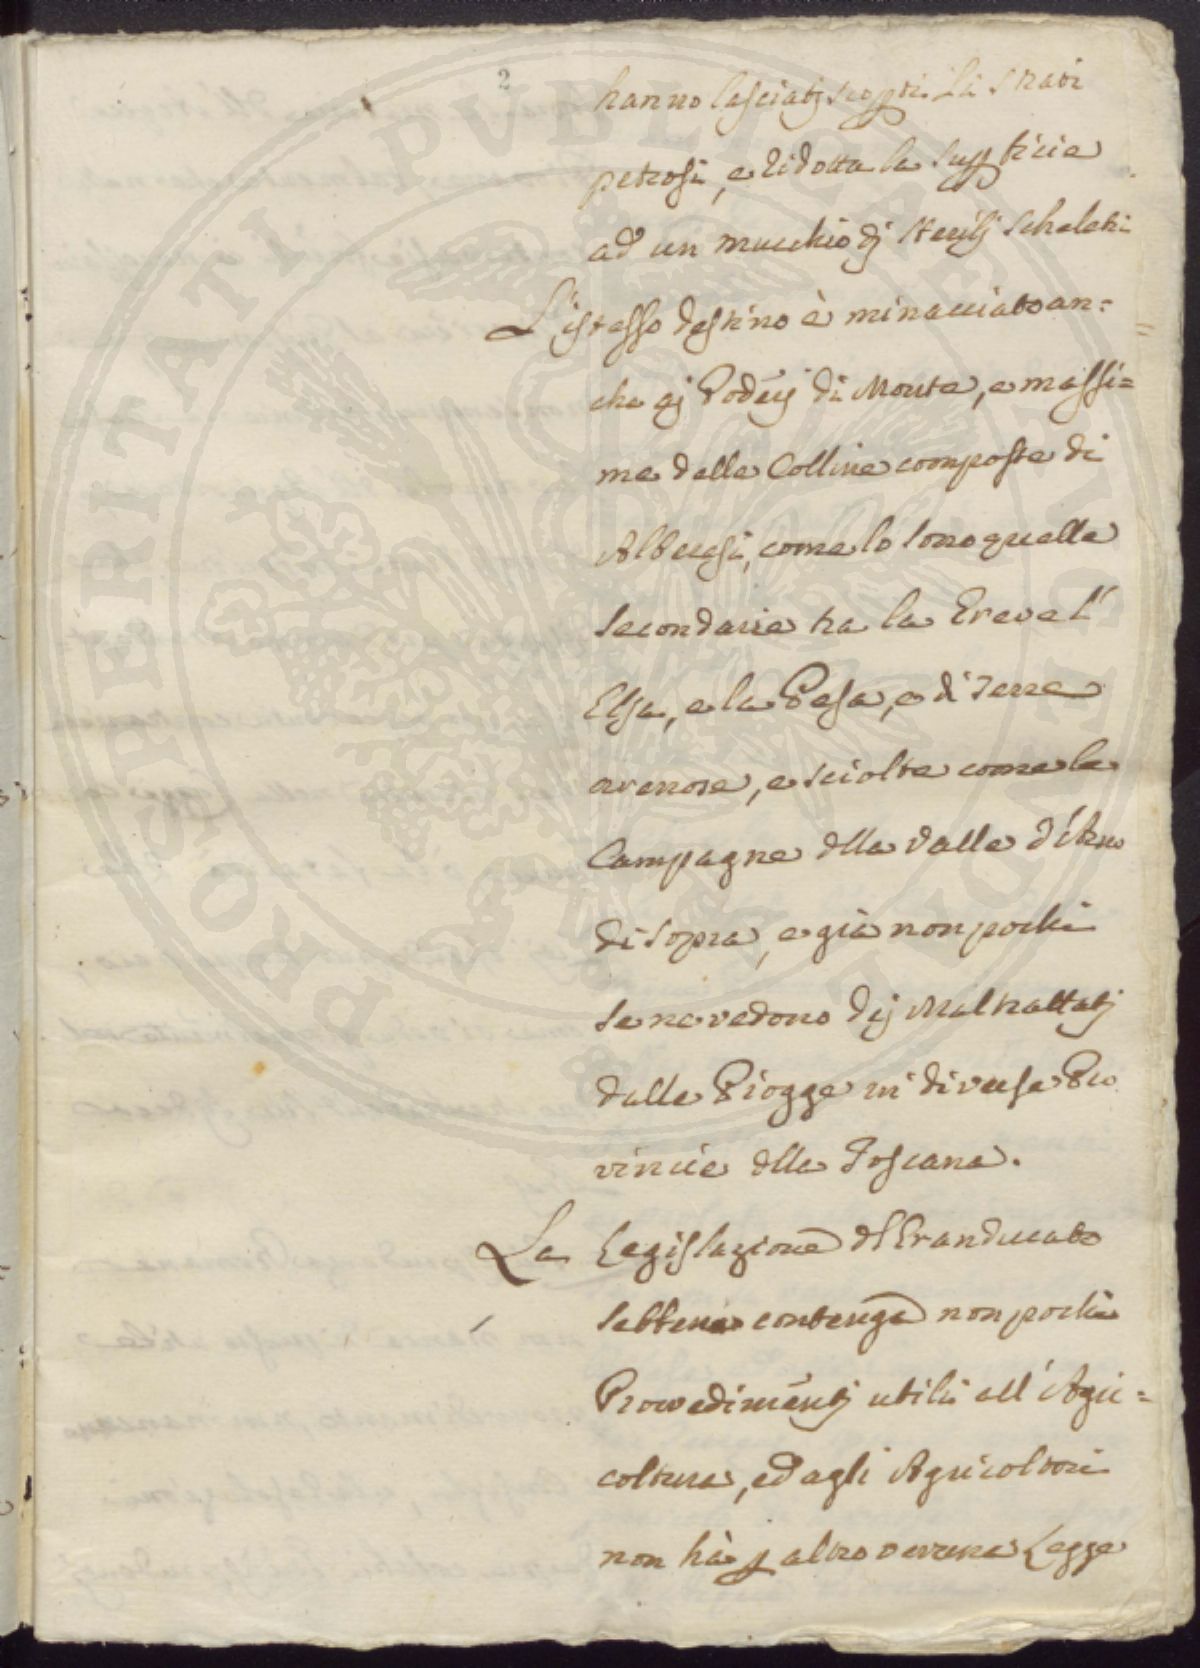 2
hanno lasciatj scoppti li Strati
petrosi, e ridotta la suppficie
ad un mucchio dj sterilj scheletri
L'istesso destino è minacciato an=
che aj Poderj di Monte, e massi=
me delle Colline composte di
Alberesi, come lo sono quelle
secondarie tra la Greve l'
Elsa, e la Pesa, e di Terre
arenose, e sciolte come le
Campagne dlla Valle d'Arno
di sopra, e già non pochi
se ne vedono dej Maltrattatj
dalle Piogge in diverse Pro
vincie dlla Toscana.
La Legislazione dl Granducato
sebbene contenga non pochi
Provvedimentj utili all'Agri=
coltura, ed agli Agricoltori
non hà p altro veruna Legge
PROSPERITATI PVBLICAE AVGENDAE